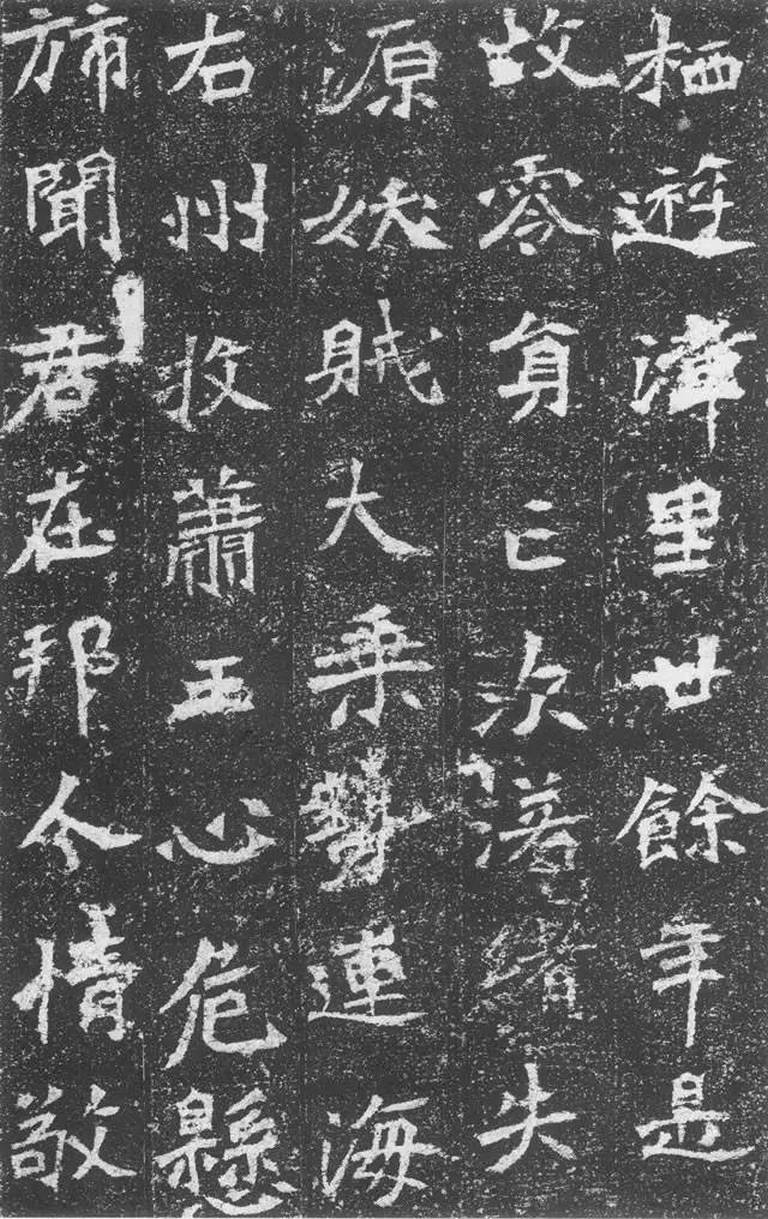 栖遊漳里廿餘年是
故零負已次落緒失
源妖賊大乘勢連海
右州牧蕭王心危懸
旆聞君在邦令情敬